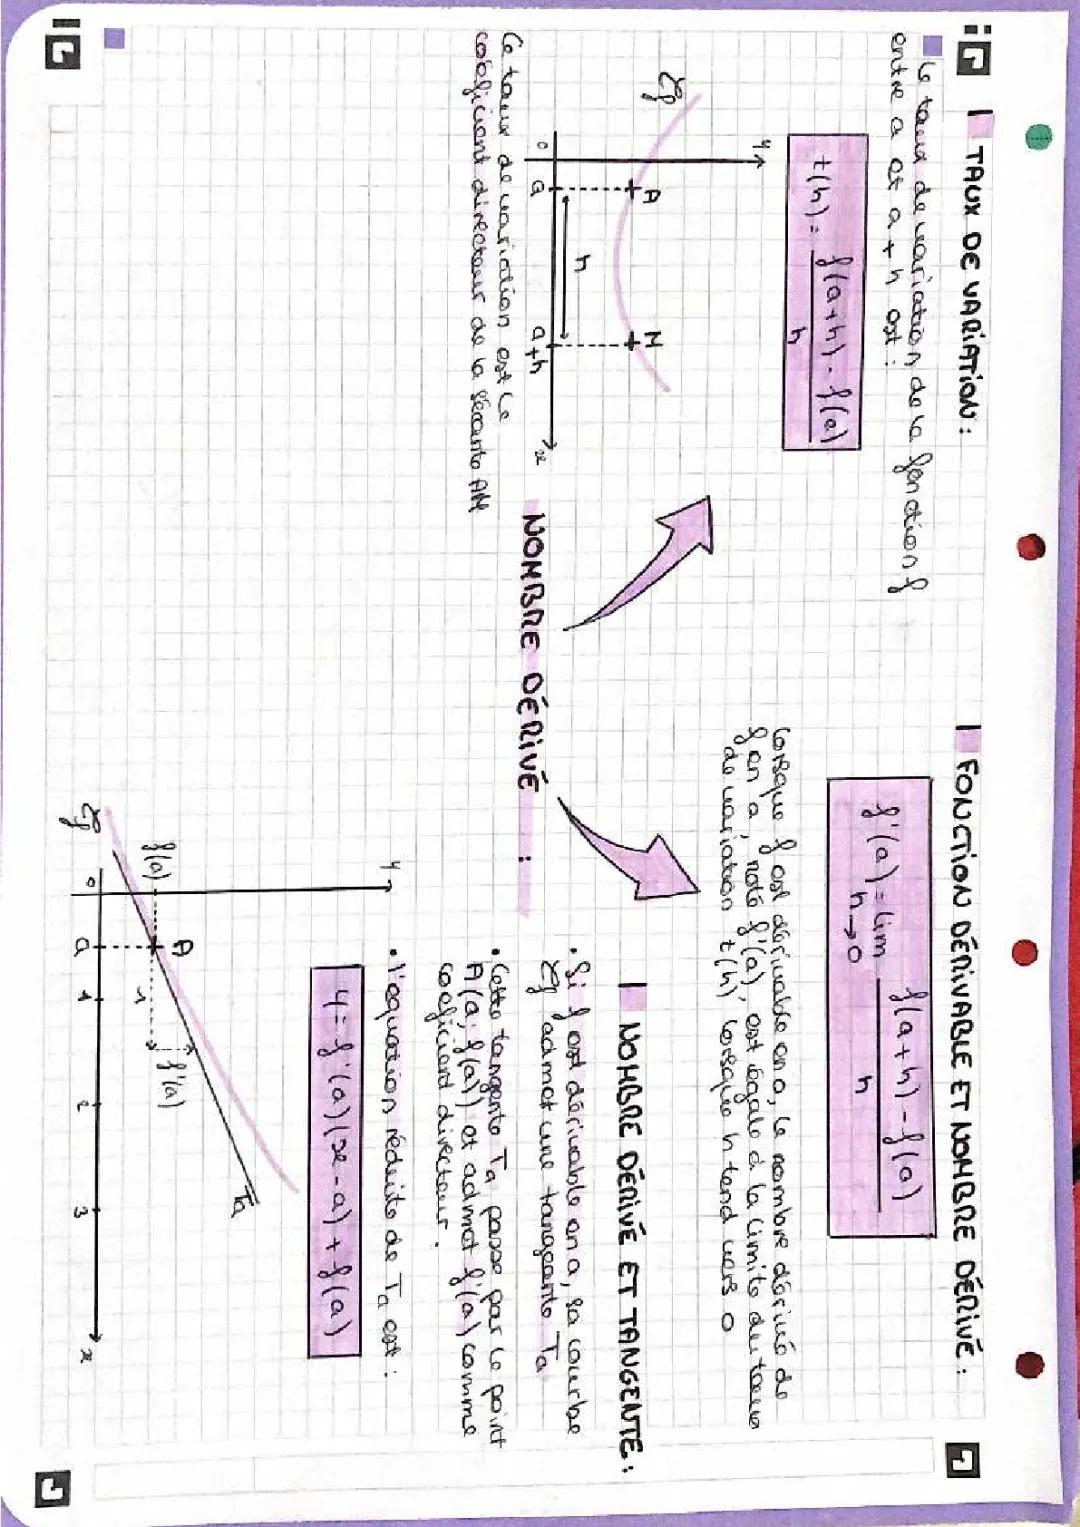 TAUX DE VARIATION :
Le taux de variation de la fonction f
entre a et a + h est :
t(h) = f(a+h) - f(a)
h
y
A
M
Cf
h
0
a
a+h
x
Le taux de variation est le
coefficient directeur de la sécante AM
NOMBRE DÉRIVÉ :
FONCTION DÉRIVABLE ET NOMBRE DÉRIVÉ :
f'(a) = lim f(a+h) - f(a)
h→0 h
Lorsque f est dérivable en a, le nombre dérivé de
f en a, noté f'(a), est égale à la limite du taux
de variation t(h) lorsque h tend vers 0
NOMBRE DÉRIVÉ ET TANGENTE :
• Si f est dérivable en a, sa courbe
Cf admet une tangeante Ta
• Cette tangente Ta passe par le point
A(a; f(a)) et admet f'(a) comme
coefficient directeur.
• l'equation réduite de Ta est :
y = f'(a)(x-a) + f(a)
y
Ta
A
f'(a)
f(a)
1
Cf
0
a
1
2
3
x